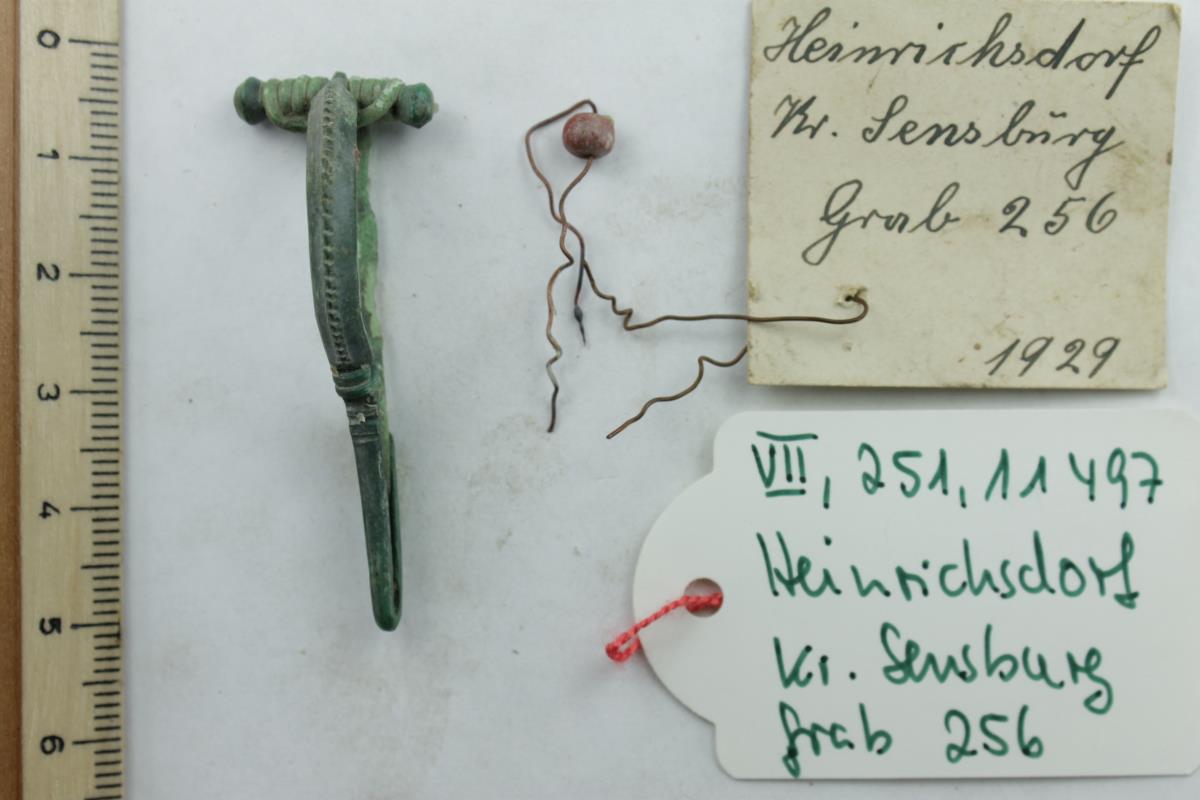 0
1
2
3
4
5
6
Heinrichsdorf
Kr. Sensbŭrg
Grab 256
1929
VII, 251, 11497
Heinrichsdorf
Kr. Sensburg
Grab 256